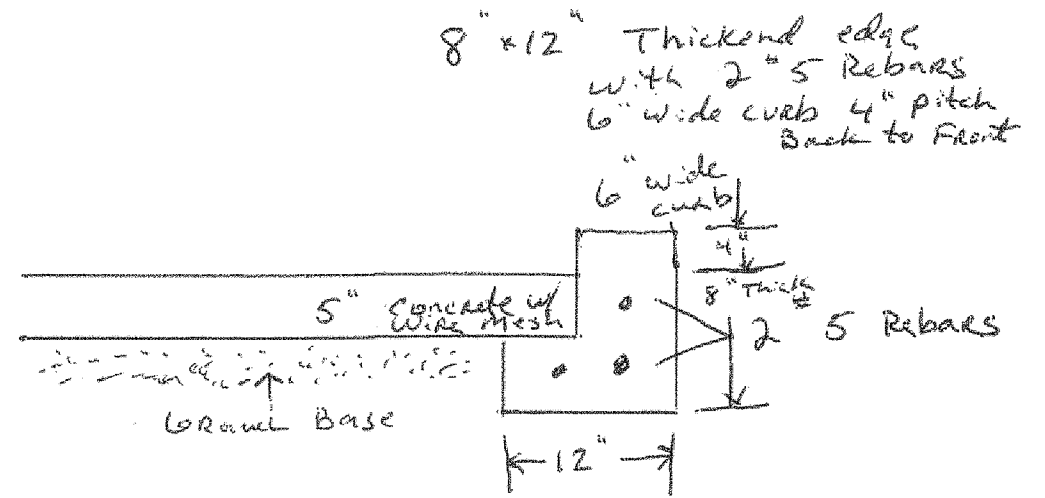 8"x12" Thickend edge
with 2 #5 Rebars
6" wide curb 4" pitch
Back to Front
6" wide
curb
4"
8" Thick
5" Concrete w/
wire mesh
2 # 5 Rebars
Gravel Base
12"